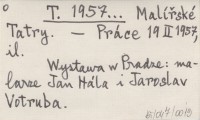 T. 1957... Malířské
Tatry. — Práce 19 II 1957,
il.
Wystawa w Pradze: ma-
larze Jan Hála i Jaroslav
Votruba.